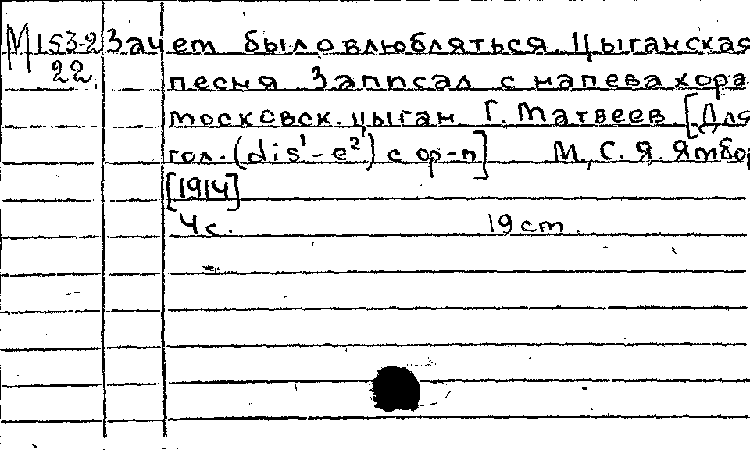 М153-2 Зачем было влюбляться. Цыганская
22. песня Записал с напева хора
московск. цыган Г. Матвеев [Для
гол. (dis¹-e²) с ф-п] М., С. Я. Ямбор
[1914]
4с. 19 cm.